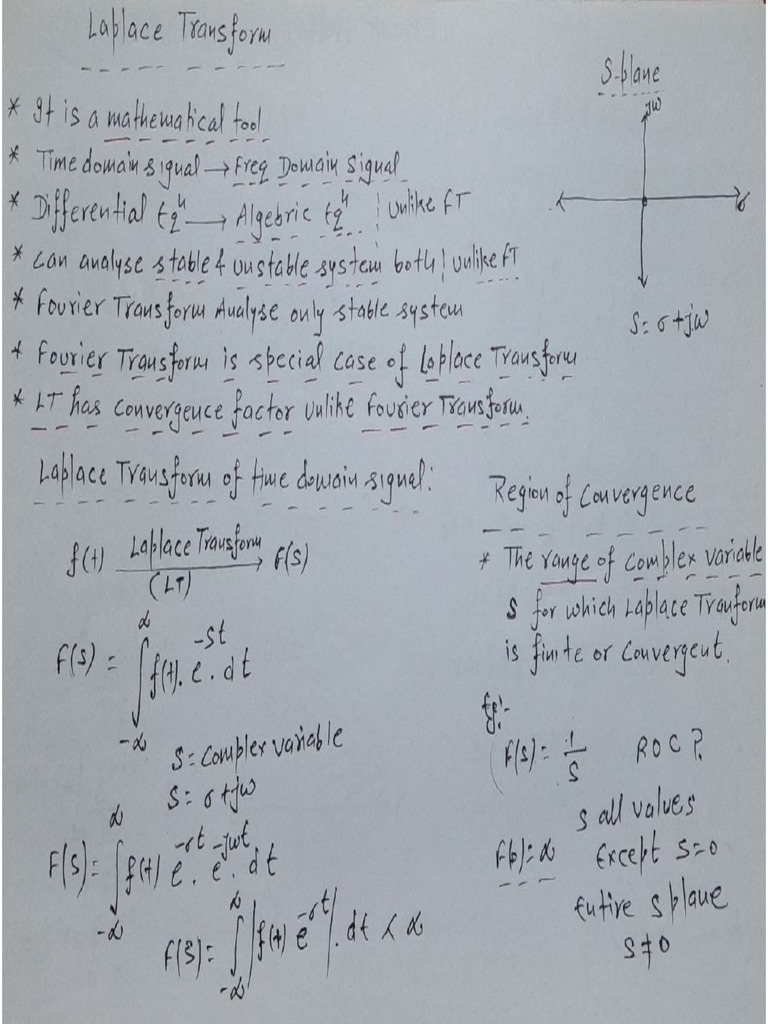 Laplace Transform
S-plane
jw
σ
S = σ+jw
* It is a mathematical tool
* Time domain signal → Freq Domain Signal
* Differential Eqⁿ → Algebric Eqⁿ | Unlike FT
* can analyse stable & unstable system both | unlike FT
* Fourier Transform Analyse only stable system
* Fourier Transform is special case of Laplace Transform
* LT has convergence factor unlike Fourier Transform.
Laplace Transform of time domain signal:
f(t) Laplace Transform (LT) → F(S)
F(S) = ∫_{-∞}^{∞} f(t). e^{-st}. dt
S = Complex variable
S = σ+jw
F(S) = ∫_{-∞}^{∞} f(t) e^{-σt}. e^{-jwt}. dt
F(S) = ∫_{-∞}^{∞} |f(t) e^{-σt}|. dt < ∞
Region of Convergence
* The range of complex variable
S for which Laplace Tranform
is finite or Convergent.
Eg:-
F(S) = 1/S ROC?
S all values
F(s) = ∞ Except S=0
Entire S plane
S≠0